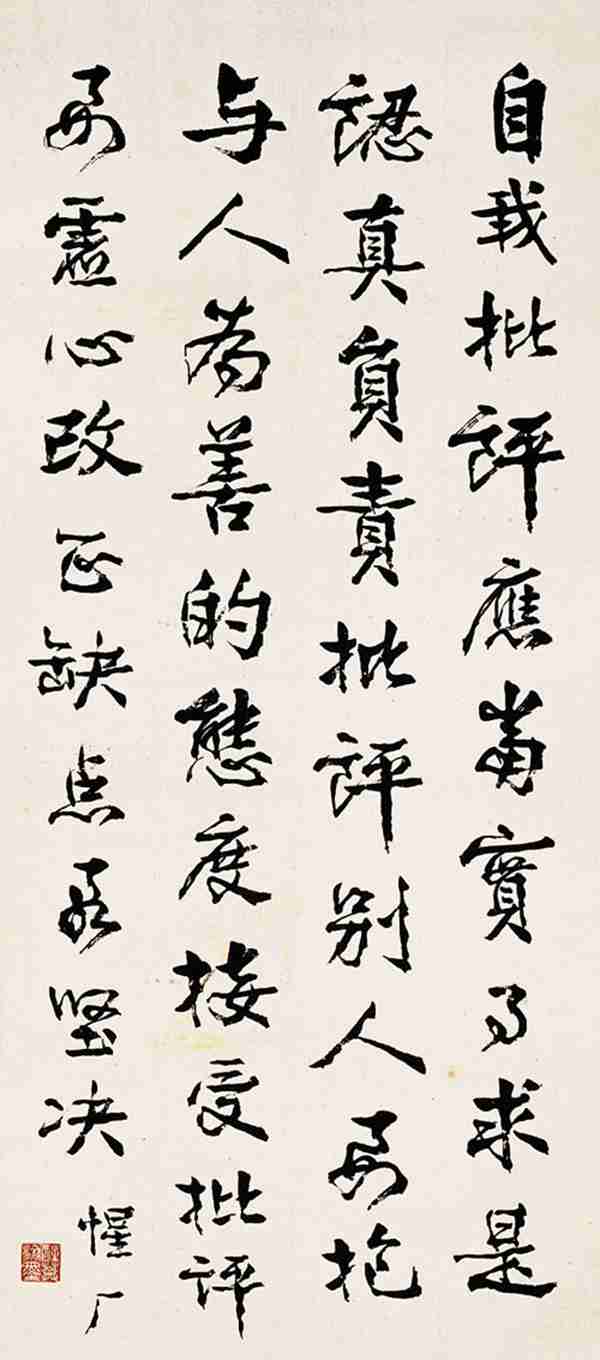 自我批評應當實事求是
認真負責批評别人要抱
与人為善的態度接受批評
要虛心改正缺点要堅决
惺厂